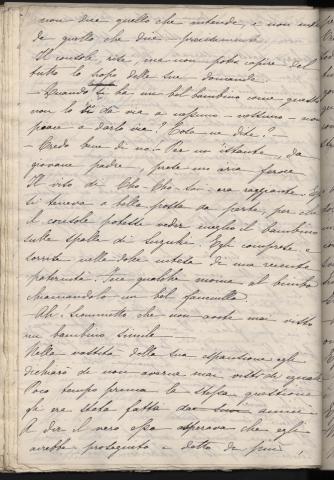 non dice quello che intende, e non inten
de quello che dice - precisamente.
Il console, rise, ma non potè capire del
tutto lo scopo della sua domanda
- Quando si ha un bel bambino come questo
non lo si dà via a nessuno - nessuno - non
pare a darlo via? Cosa ne dite? -
- Credo bene di no. Per un istante, da
giovane padre, prese un'aria feroce
Il viso di Cho-Cho-San era raggiante. Egli
si teneva a bella posta da parte, per che
il console potesse veder meglio il bambino
sulle spalle di Suzuki. Egli comprese e
sorrise nella dolce intesa di una recente
paternità. Fece qualche moine al bimbo
chiamandolo un bel fanciullo.
- Ah! Scommetto che non avete mai visto
un bambino simile -
Nella vastità della sua espansione egli
dichiarò di non averne mai visti di eguali
Poco tempo prima la stessa questione
gli era stata fatta
A dir il vero essa sperava che egli
avrebbe proseguito a detto di più,